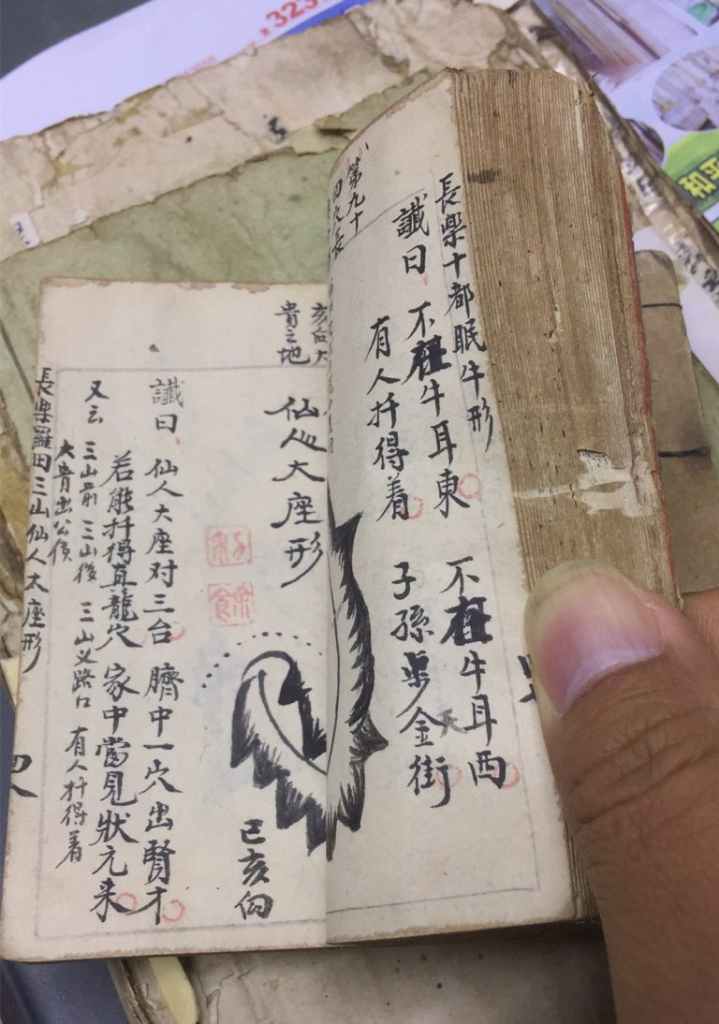 長樂十都眠牛形
讖曰 不在牛耳東 不在牛耳西
有人扦得着 子孫步金街
天
第九十
亥向大
貴之地
仙人大座形
巳亥向
讖曰 仙人大座对三台 臍中一穴出賢才
若能扦得真龍穴 家中當見狀元来
又云 三山前 三山後 三山义路口 有人扦得着
大貴出公侯
長樂羅田三山仙人大座形
,323